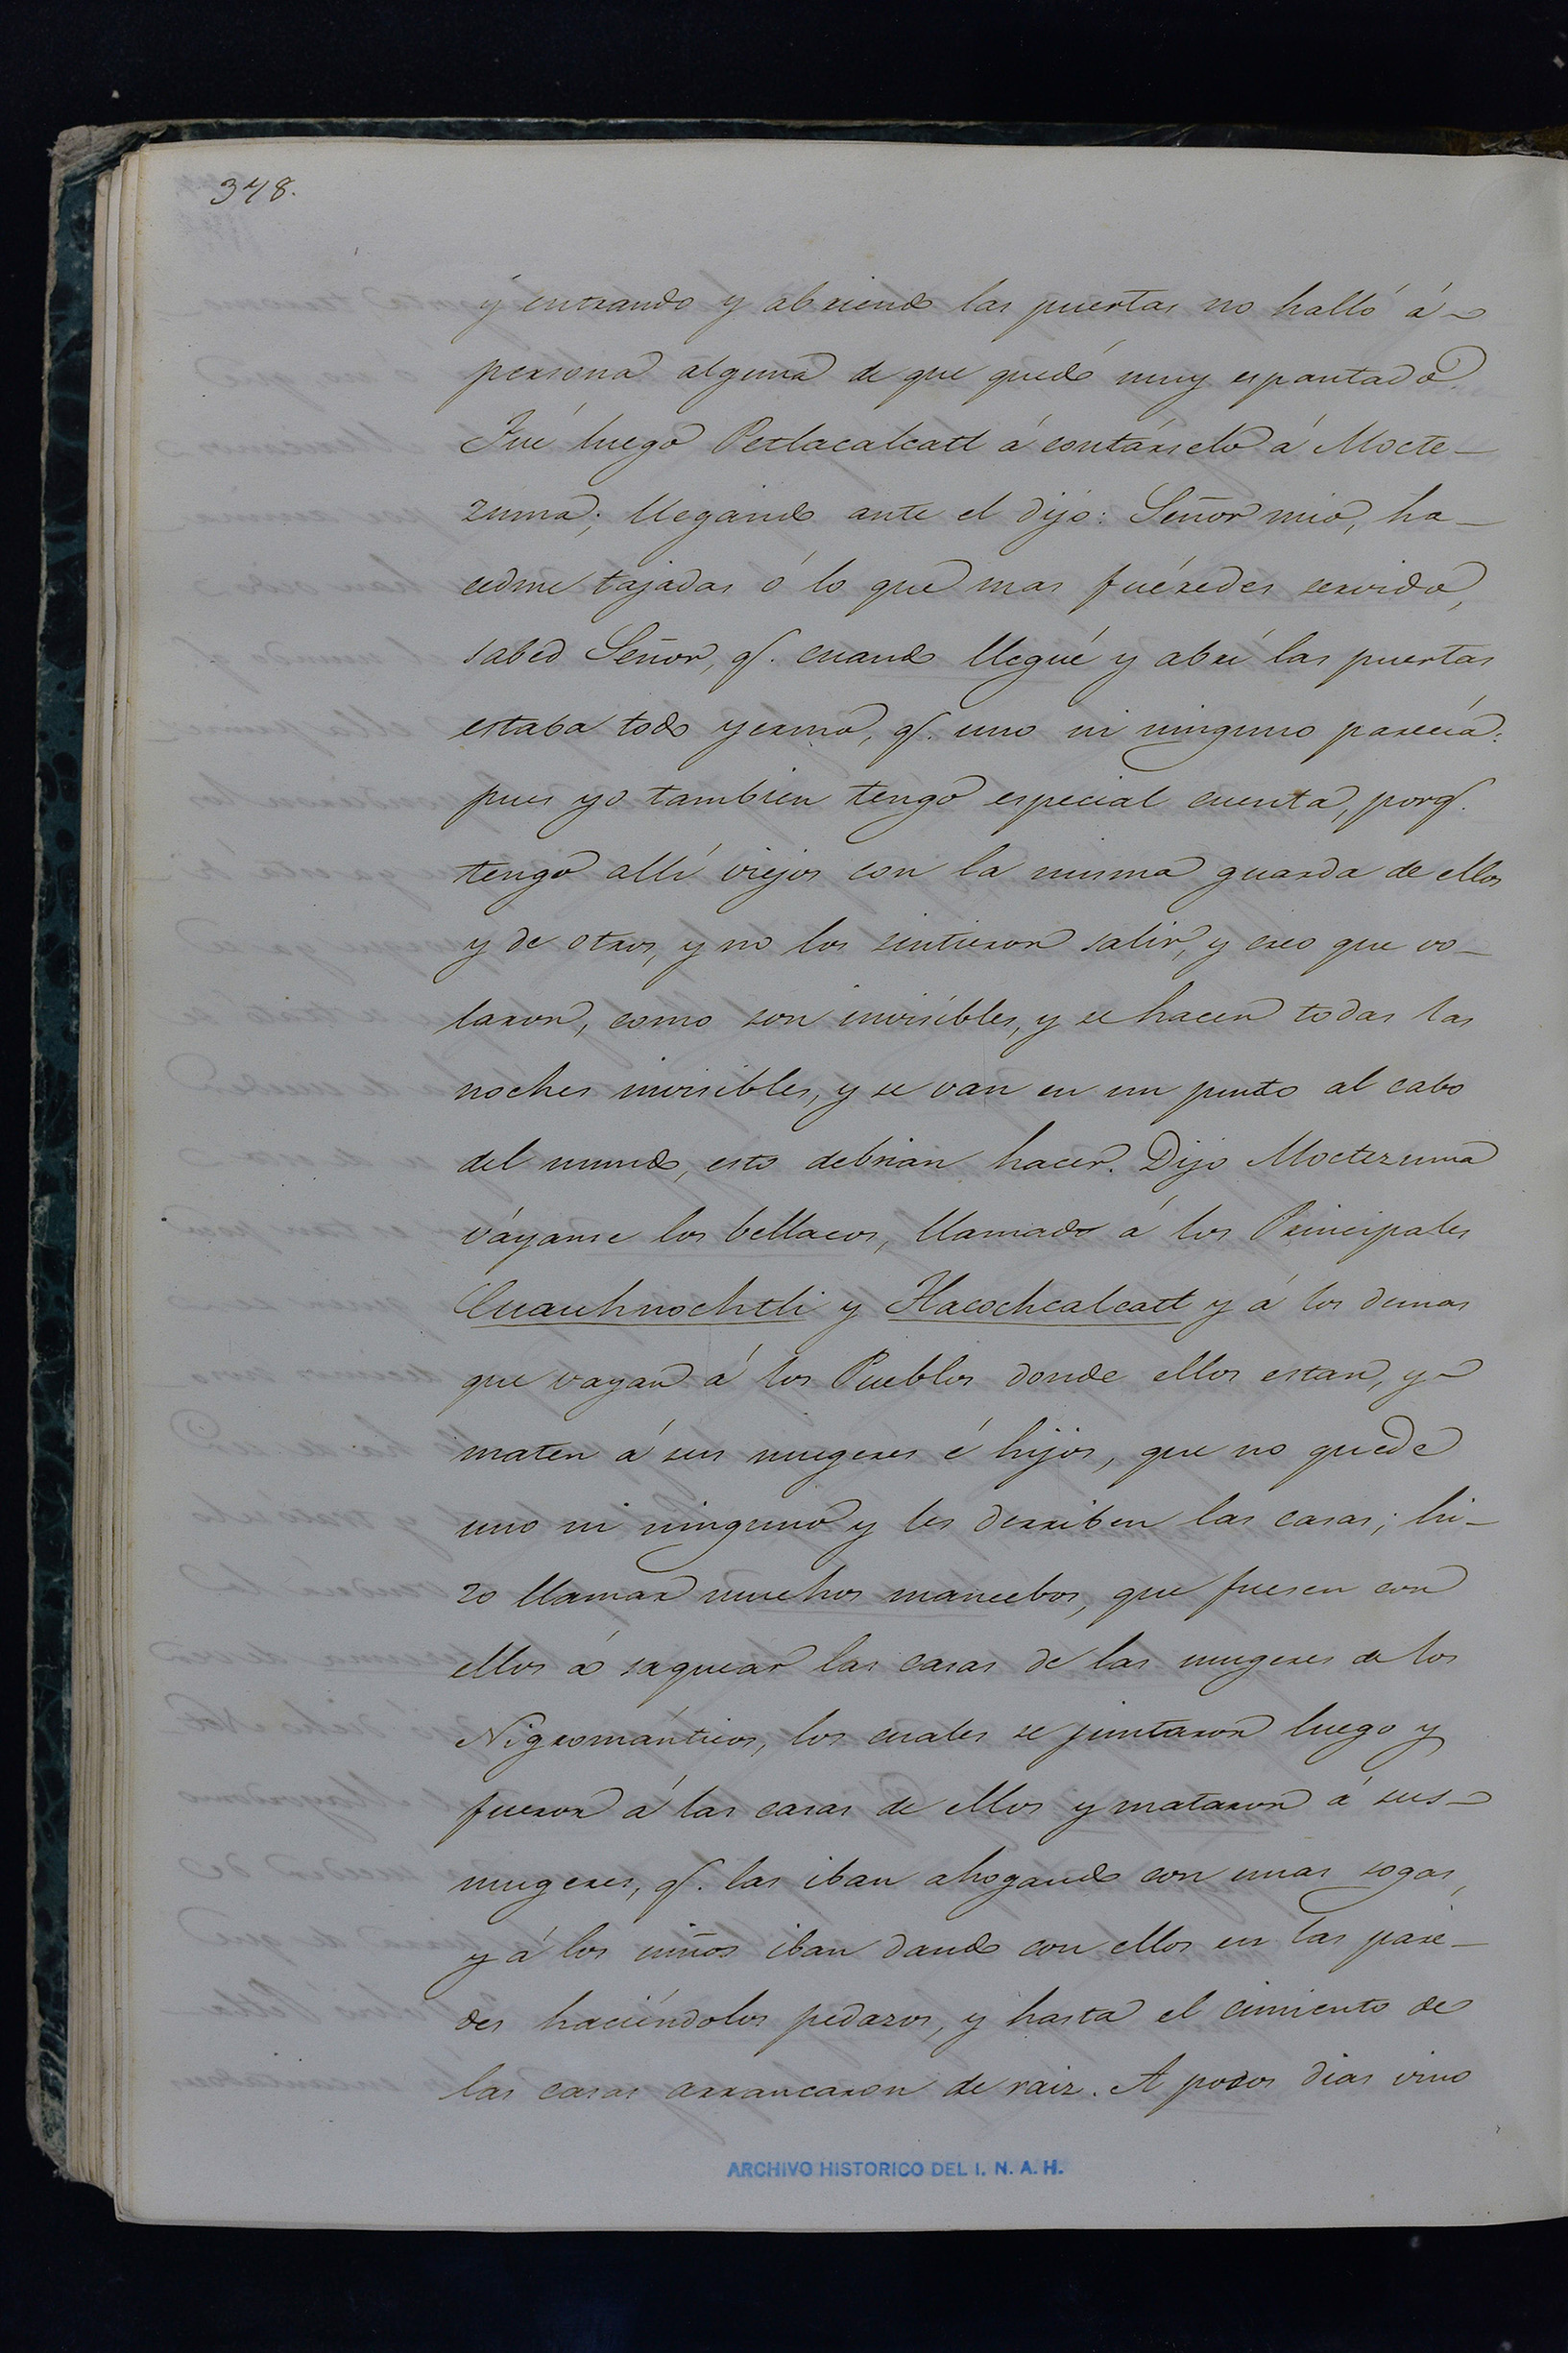 378.
y entrando y abriendo las puertas no halló á
persona alguna de que quedó muy espantado.
Fué luego Petlacalcatl á contárselo á Mocte-
zuma; llegando ante el dijo: Señor mio, ha-
cedme tajadas ó lo que mas fuéredes servido,
sabed Señor, q. cuando llegué y abrí las puertas
estaba todo yermo, q. uno ni ninguno parecia:
pues yo tambien tengo especial cuenta, porq.
tengo allí viejos con la misma guarda de ellos
y de otros, y no los sintieron salir, y creo que vo-
laron, como son invisibles, y se hacen todas las
noches invisibles, y se van en un punto al cabo
del mundo, esto debrian hacer. Dijo Moctezuma
váyanse los bellacos, llamado á los Principales
Cuauhnochtli y Tlacochcalcatl y á los demas
que vayan á los Pueblos donde ellos estan, y
maten á sus mugeres é hijos, que no quede
uno ni ninguno y les derriben las casas; hi-
zo llamar muchos mancebos, que fuesen con
ellos á saquear las casas de las mugeres de los
Nigrománticos, los cuales se juntaron luego y
fueron á las casas de ellos y mataron á sus
mugeres, q. las iban ahogando con unas sogas,
y á los niños iban dando con ellos en las pare-
des haciéndolos pedazos, y hasta el cimiento de
las casas arrancaron de raiz. A pocos dias vino
ARCHIVO HISTORICO DEL I. N. A. H.